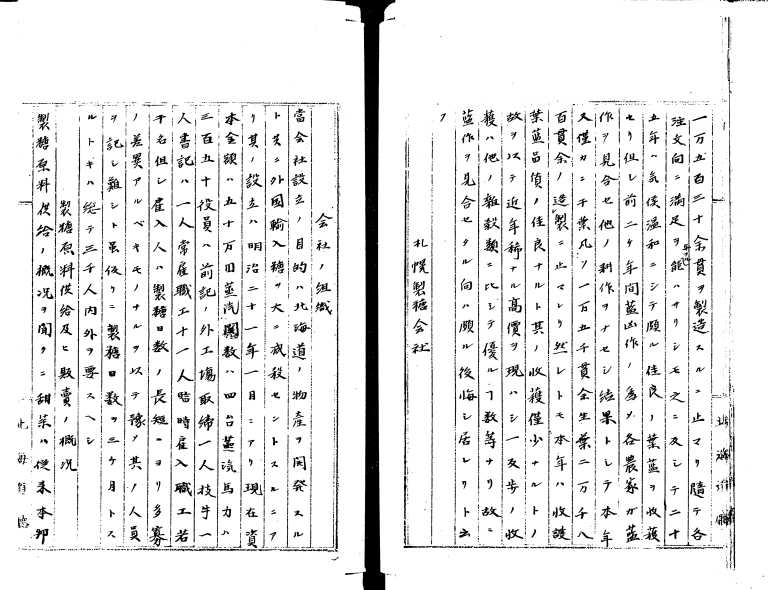 一万五百三十余貫ヲ製造スルニ止マリ随テ各
注文向ニ満足ヲ能ハサリシモ之ニ及シテ二十
五年ハ気候温和ニシテ頗ル佳良ノ葉藍ヲ收穫
セリ但シ前二ケ年間藍凶作ノ為メ各農家ガ藍
作ヲ見合セ他ノ耕作ヲナセシ結果トシテ本年
又僅カニ干葉凡ソ一万五千貫余生葉二万千八
百貫余ノ造製ニ止マレリ然レトモ本年ハ收穫
葉藍品質ノ佳良ナルト其ノ收獲僅少ナルトノ
故ヲ以テ近年稀ナル高價ヲ現ハシ一反歩ノ收
穫ハ他ノ雑穀類ニ比シテ優ルヿ数等ナリ故ニ
藍作ヲ見合セタル向ハ頗ル後悔シ居レリト云
フ
札幌製糖会社
会社ノ組織
當会社設立ノ目的ハ北海道ノ物産ヲ開発スル
ト共ニ外國輸入糖ヲ大ニ減殺セントスルニア
リ其ノ設立ハ明治二十一年一月ニアリ現在資
本金額ハ五十万円蒸汽鑵数ハ四台蒸汽馬力ハ
三百五十役員ハ前記ノ外工場取締一人技手一
人書記ハ一人常雇職工十一人臨時雇入職工若
干名但シ雇入人ハ製糖日数ノ長短ニヨリ多寡
ノ差異アルベキモノナルヲ以テ豫メ其ノ人員
ヲ記シ難シト虽仮リニ製糖日数ヲ三ケ月トス
ルトキハ総テ三千人内外ヲ要スヘシ
製糖原料供給及ヒ販賣ノ概况
製糖原料供給ノ概况ヲ聞クニ甜菜ハ従来本郡
北海道廳